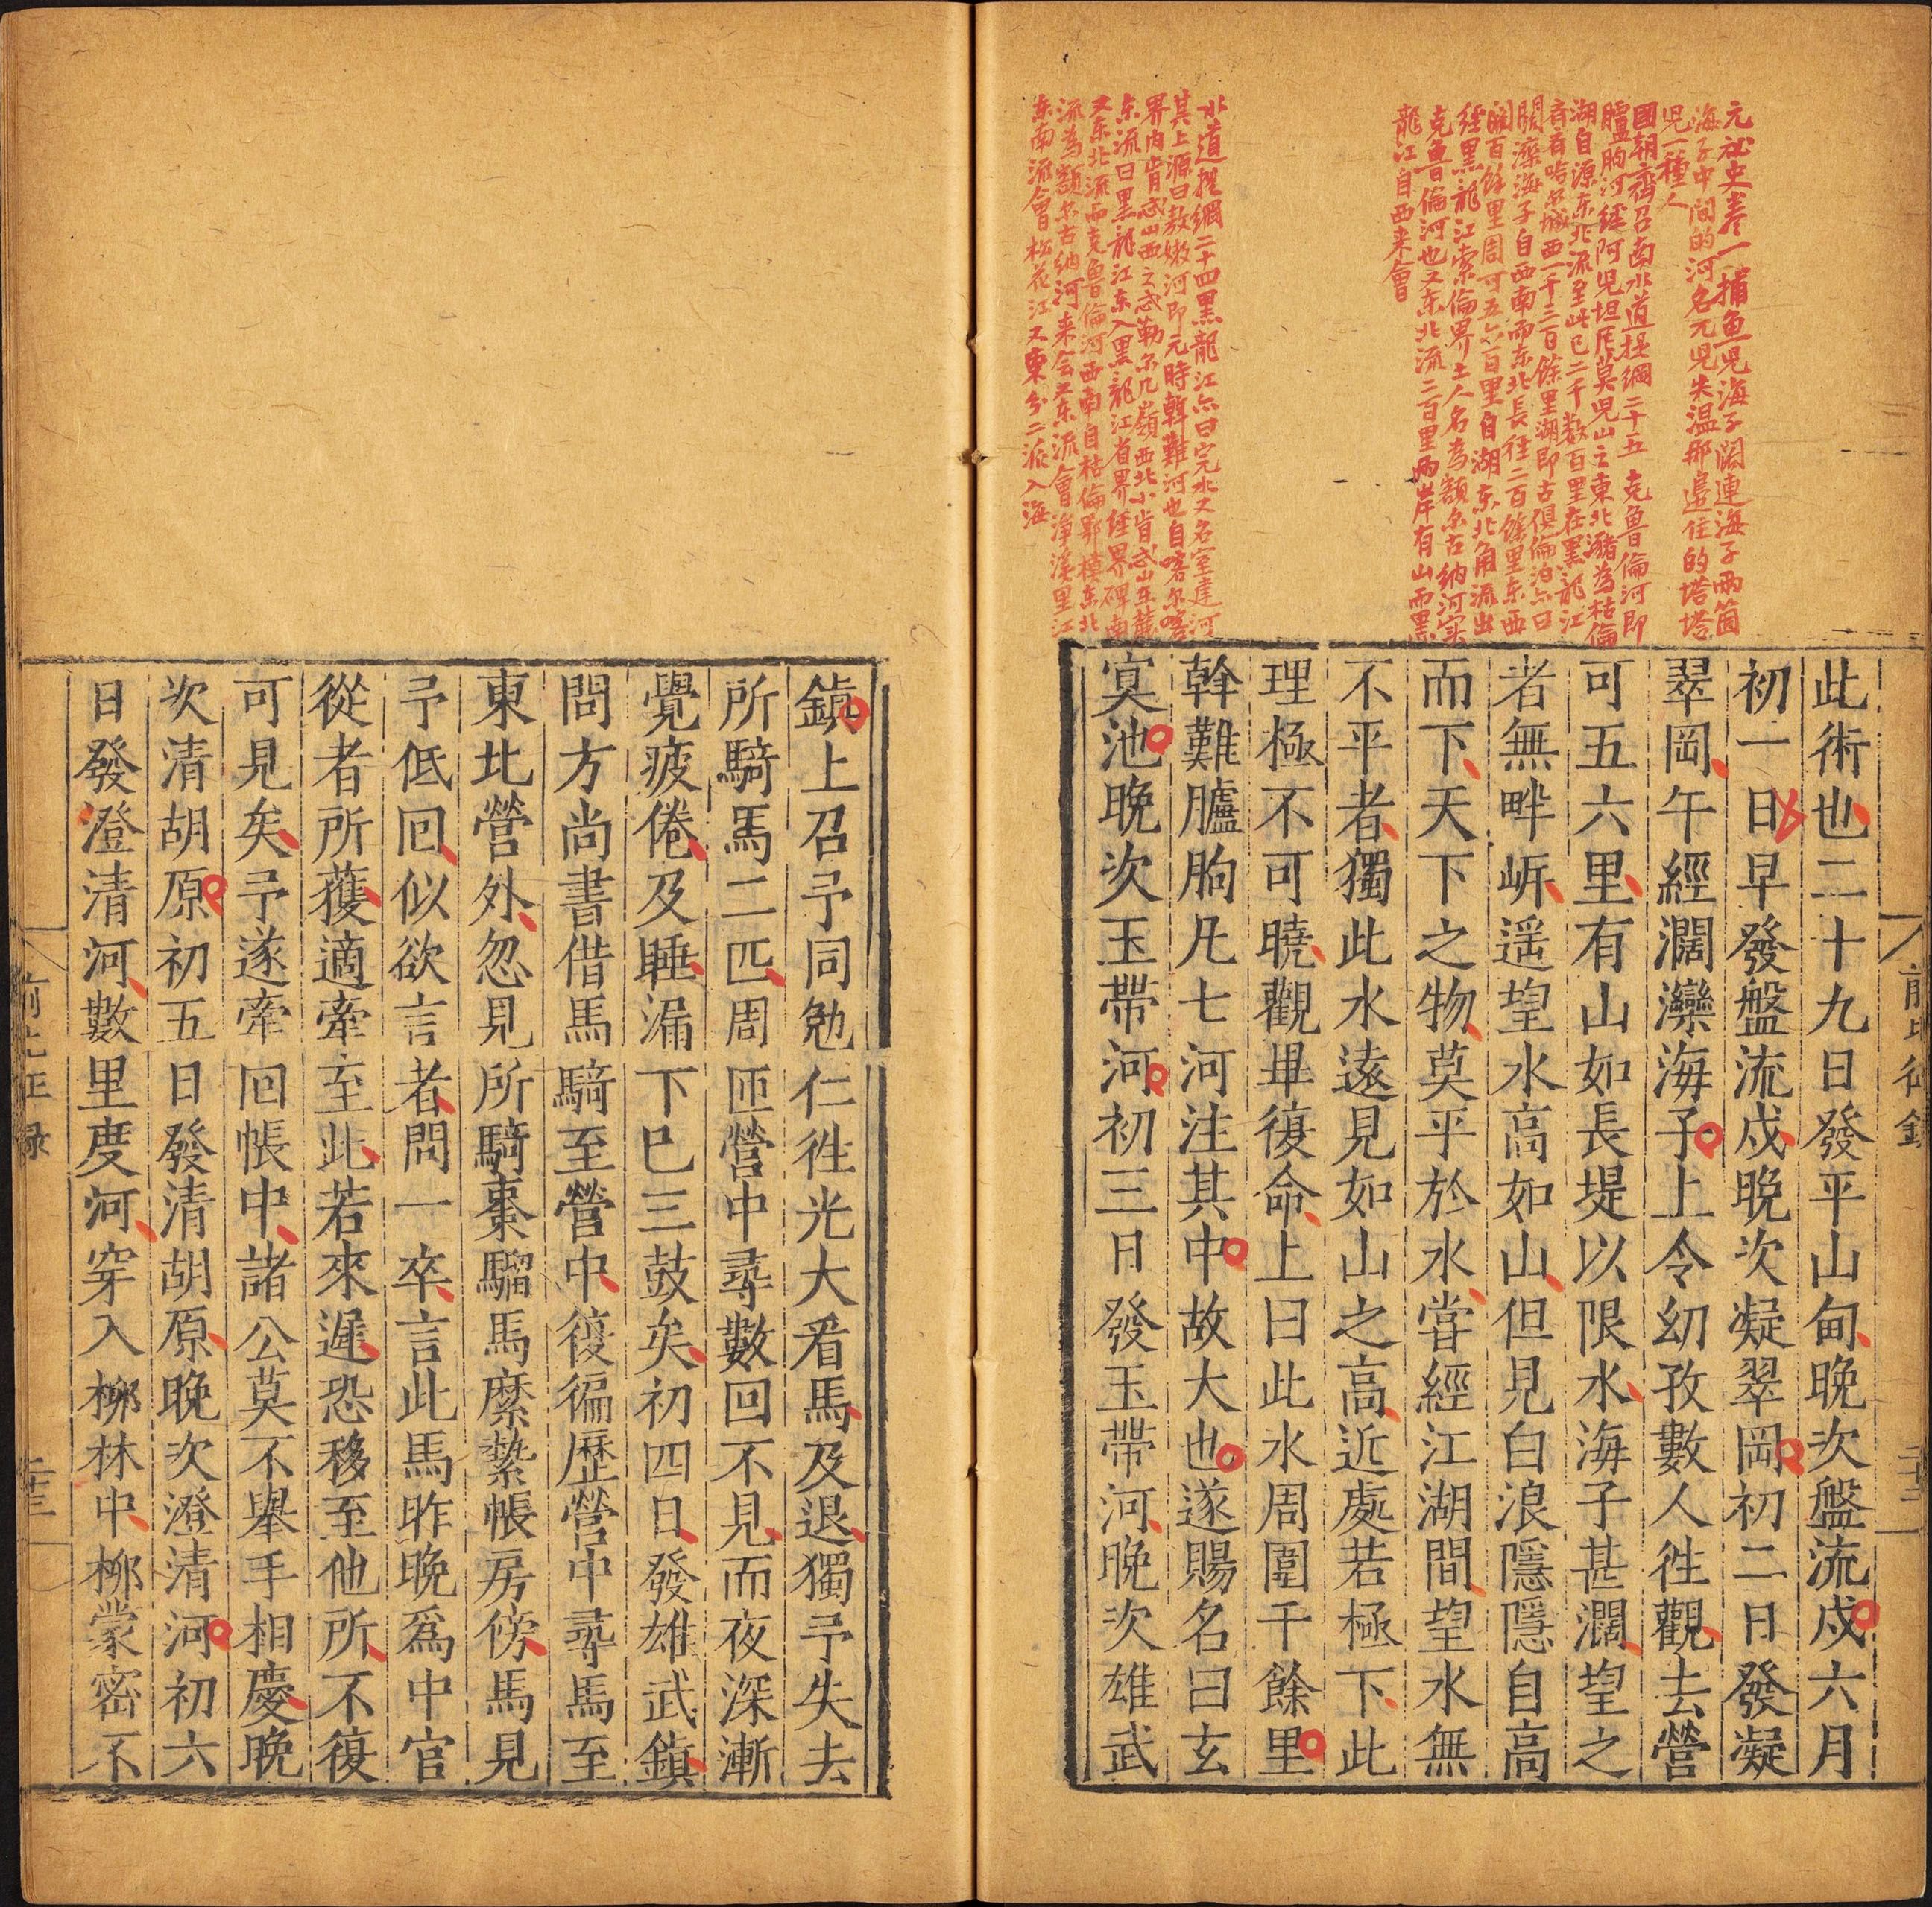 元秘史卷一捕魚児海子闊連海子兩箇
海子中間的河名兀児失温那邊住的塔塔
児一種人
國朝齊召南水道提綱二十五 克魯倫河即
臚朐河經阿児坦厄莫児山之東北瀦為枯倫
湖自源东北流至此已二千数百里在黑龍江
城西一千二百餘里湖即古俱倫泊亦曰
闊灤海子自西南而东北長徑二百餘里东西
闊百餘里周可五六百里自湖东北角流出
經黑龍江索倫界土人名為額尔古納河实
克魯倫河也又东北流二百里兩岸有山而黑
龍江自西来會
水道提綱二十四黑龍江亦曰完水又名室建河
其上源曰敖嫩河即元時斡難河也自喀尔喀
界内肯忒山西之忒勒尔几嶺西北小肯忒山东麓
东流曰黑龍江东入黑龍江省界經界碑南
又东北流而克魯倫河西南自枯倫鄂模东北
流為額尔古納河来会又东流會淨溪里江
东南流會松花江又東分二派入海
此術也二十九日發平山甸晚次盤流戍六月
初一日早發盤流戍晚次凝翠岡初二日發凝
翠岡午經濶灤海子上令幼孜數人徃觀去營
可五六里有山如長堤以限水海子甚濶望之
者無畔㟁遥望水高如山但見白浪隱隱自高
而下天下之物莫平於水嘗經江湖間望水無
不平者獨此水遠見如山之高近處若極下此
理極不可曉觀畢復命上曰此水周圍千餘里
斡難臚朐凡七河注其中故大也遂賜名曰玄
㝠池晚次玉帶河初三日發玉帶河晚次雄武
鎮上召予同勉仁徃光大看馬及退獨予失去
所騎馬二匹周匝營中尋數回不見而夜深漸
覺疲倦及睡漏下巳三鼓矣初四日發雄武鎮
問方尚書借馬騎至營中復徧歷營中尋馬至
東北營外忽見所騎棗騮馬縻縶帳房傍馬見
予低回似欲言者問一卒言此馬昨晚爲中官
從者所獲適牽至此若來遲恐移至他所不復
可見矣予遂牽回帳中諸公莫不舉手相慶晚
次清胡原初五日發清胡原晚次澄清河初六
日發澄清河數里度河穿入柳林中柳䝉密不